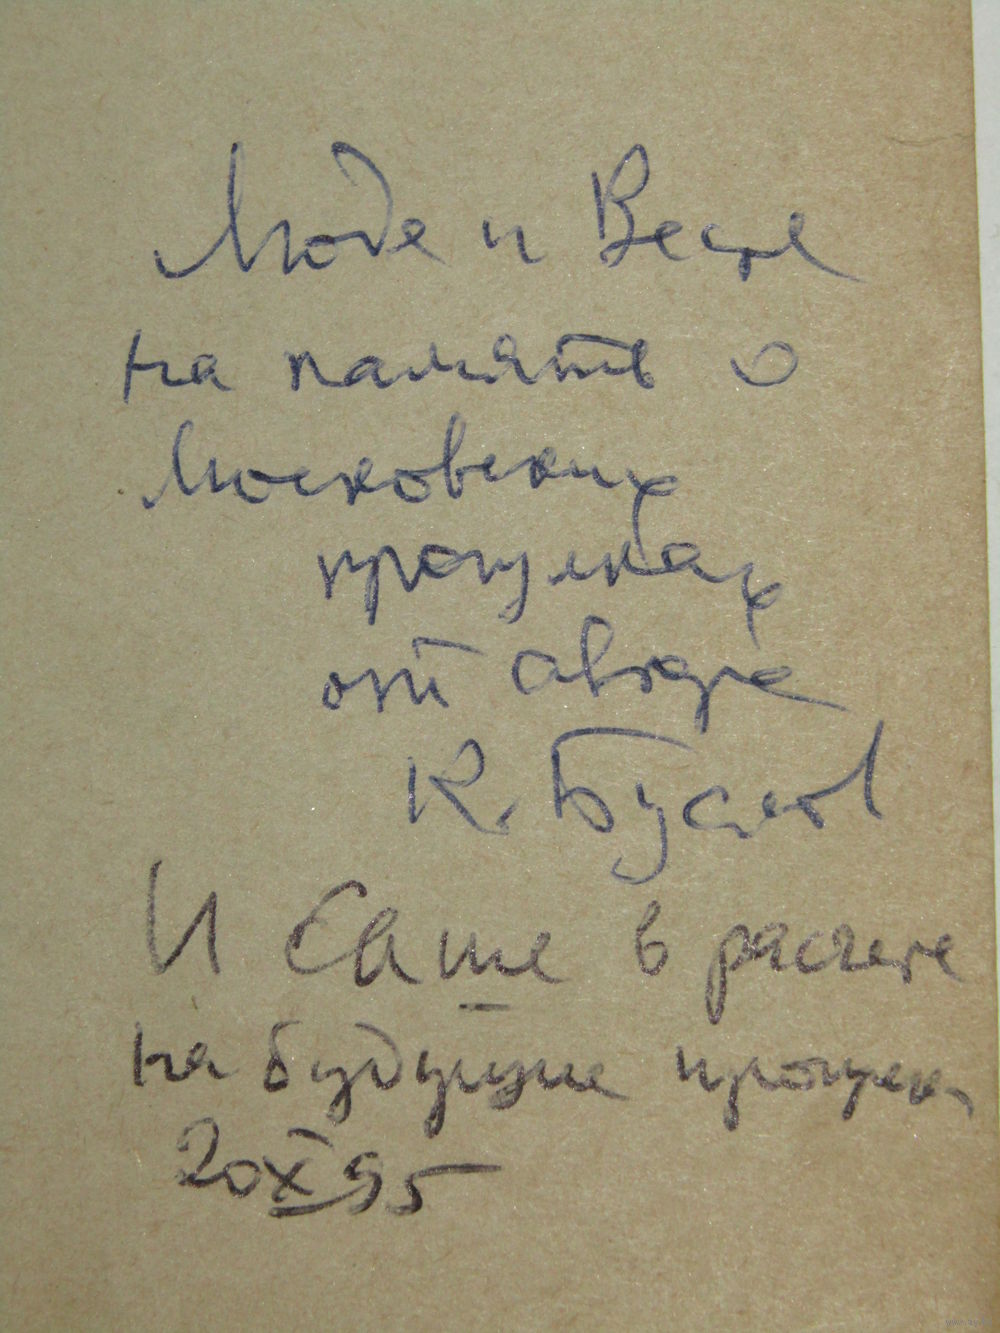 Люде и
на память о
Московских
прогулках
от автора
К. Буслов
И Саше в расчете
на будущие прогулки
20 X 95